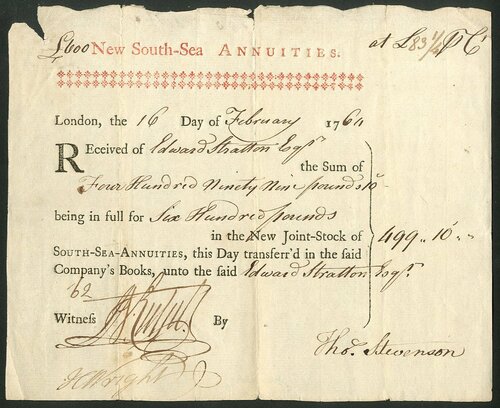 £600 New South-Sea ANNUITIES. at £83 1/4 P Ct
London, the 16 Day of February 1764
REceived of Edward Stratton Esqr.
the Sum of
Four Hundred Ninety Nine pounds 10
being in full for Six Hundred pounds
in the New Joint-Stock of
499 „ 10 „ „
SOUTH-SEA-ANNUITIES, this Day transferr'd in the said
Company's Books, unto the said Edward Stratton Esqr.
62
Witness By
Thos. Stevenson
Wright